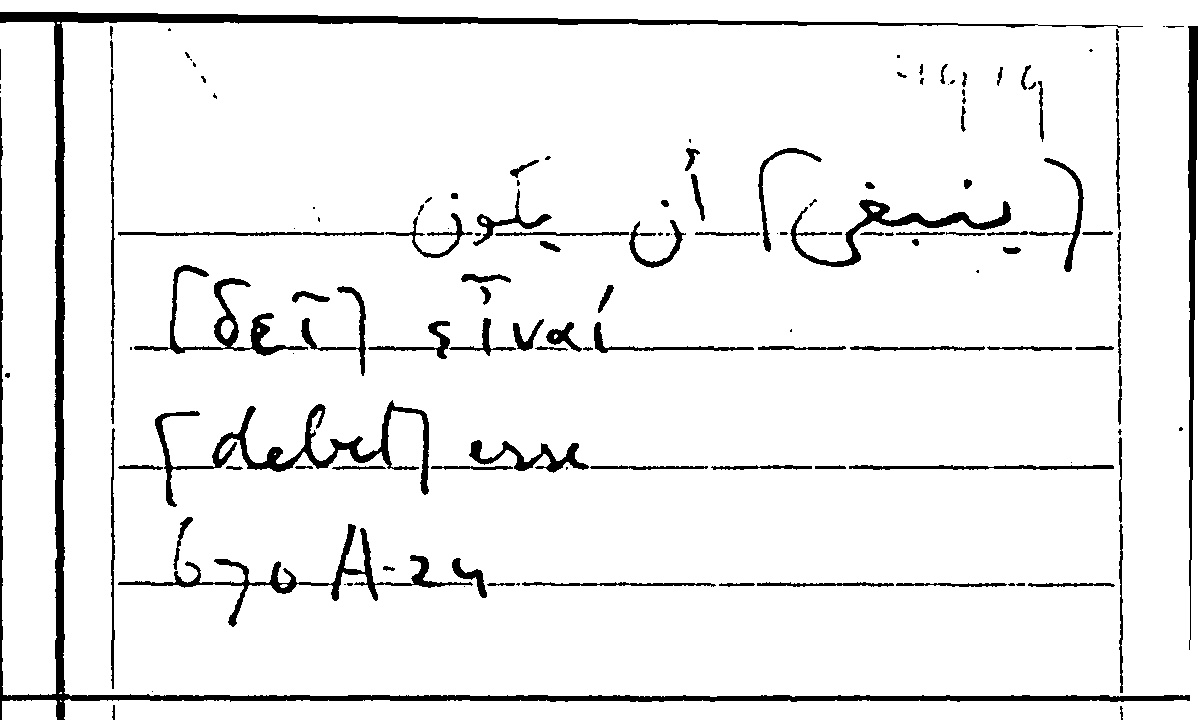 [ينبغى] أن يكون
[δεῖ] εἶναί
[debet] esse
670 A-24